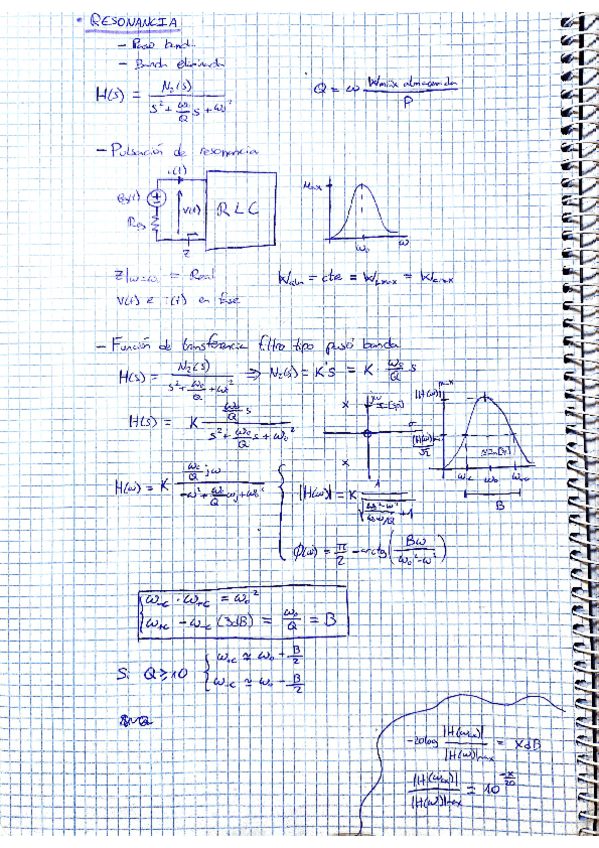 • RESONANCIA
- Paso banda
- Banda eliminada
H(s) = N₂(s) / (s² + ω₀/Q s + ω₀²)
Q = ω Wmáx almacenada / P
- Pulsación de resonancia
i(t)
v(t)
RLC
Z
Max
ω₀
ω
Z|ω=ω₀ = Real
v(t) e i(t) en fase
Walm = cte = WLmax = WCmax
- Función de transferencia filtro tipo paso banda
H(s) = N₂(s) / (s² + ω₀/Q s + ω₀²) ⇒ N₂(s) = K's = K · ω₀/Q s
H(s) = K (ω₀/Q s) / (s² + ω₀/Q s + ω₀²)
jω
σ
x
x
|H(ω)|max
|H(ω)|/√2
ω-c
ω₀
ω+c
B
H(ω) = K (ω₀/Q jω) / (-ω² + ω₀/Q ωj + ω₀²)
|H(ω)| = K 1/√(ω₀²-ω² / ωω₀/Q + 1
ϕ(ω) = π/2 - arctg(Bω / (ω₀² - ω²))
ω-c · ω+c = ω₀²
ω+c - ω-c (3dB) = ω₀/Q = B
Si Q ≥ 10
ω+c ≃ ω₀ - B/2
ω-c ≃ ω₀ - B/2
-20log |H(ωx)| / |H(ω)|max = XdB
|H(ωx)| / |H(ω)|max = 10^(-x/20)